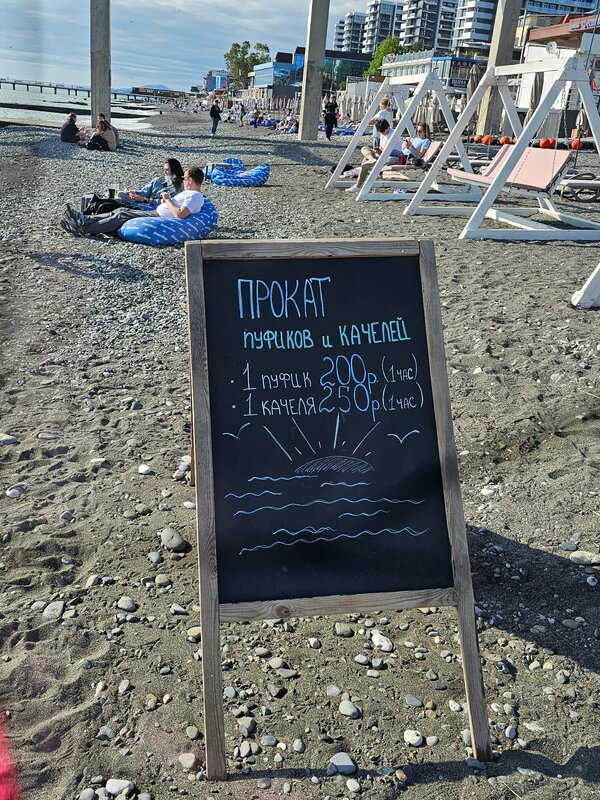 ПРОКАТ
ПУФИКОВ и КАЧЕЛЕЙ
· 1 ПУФИК 200р. (1 ЧАС)
· 1 КАЧЕЛЯ 250р. (1 ЧАС)